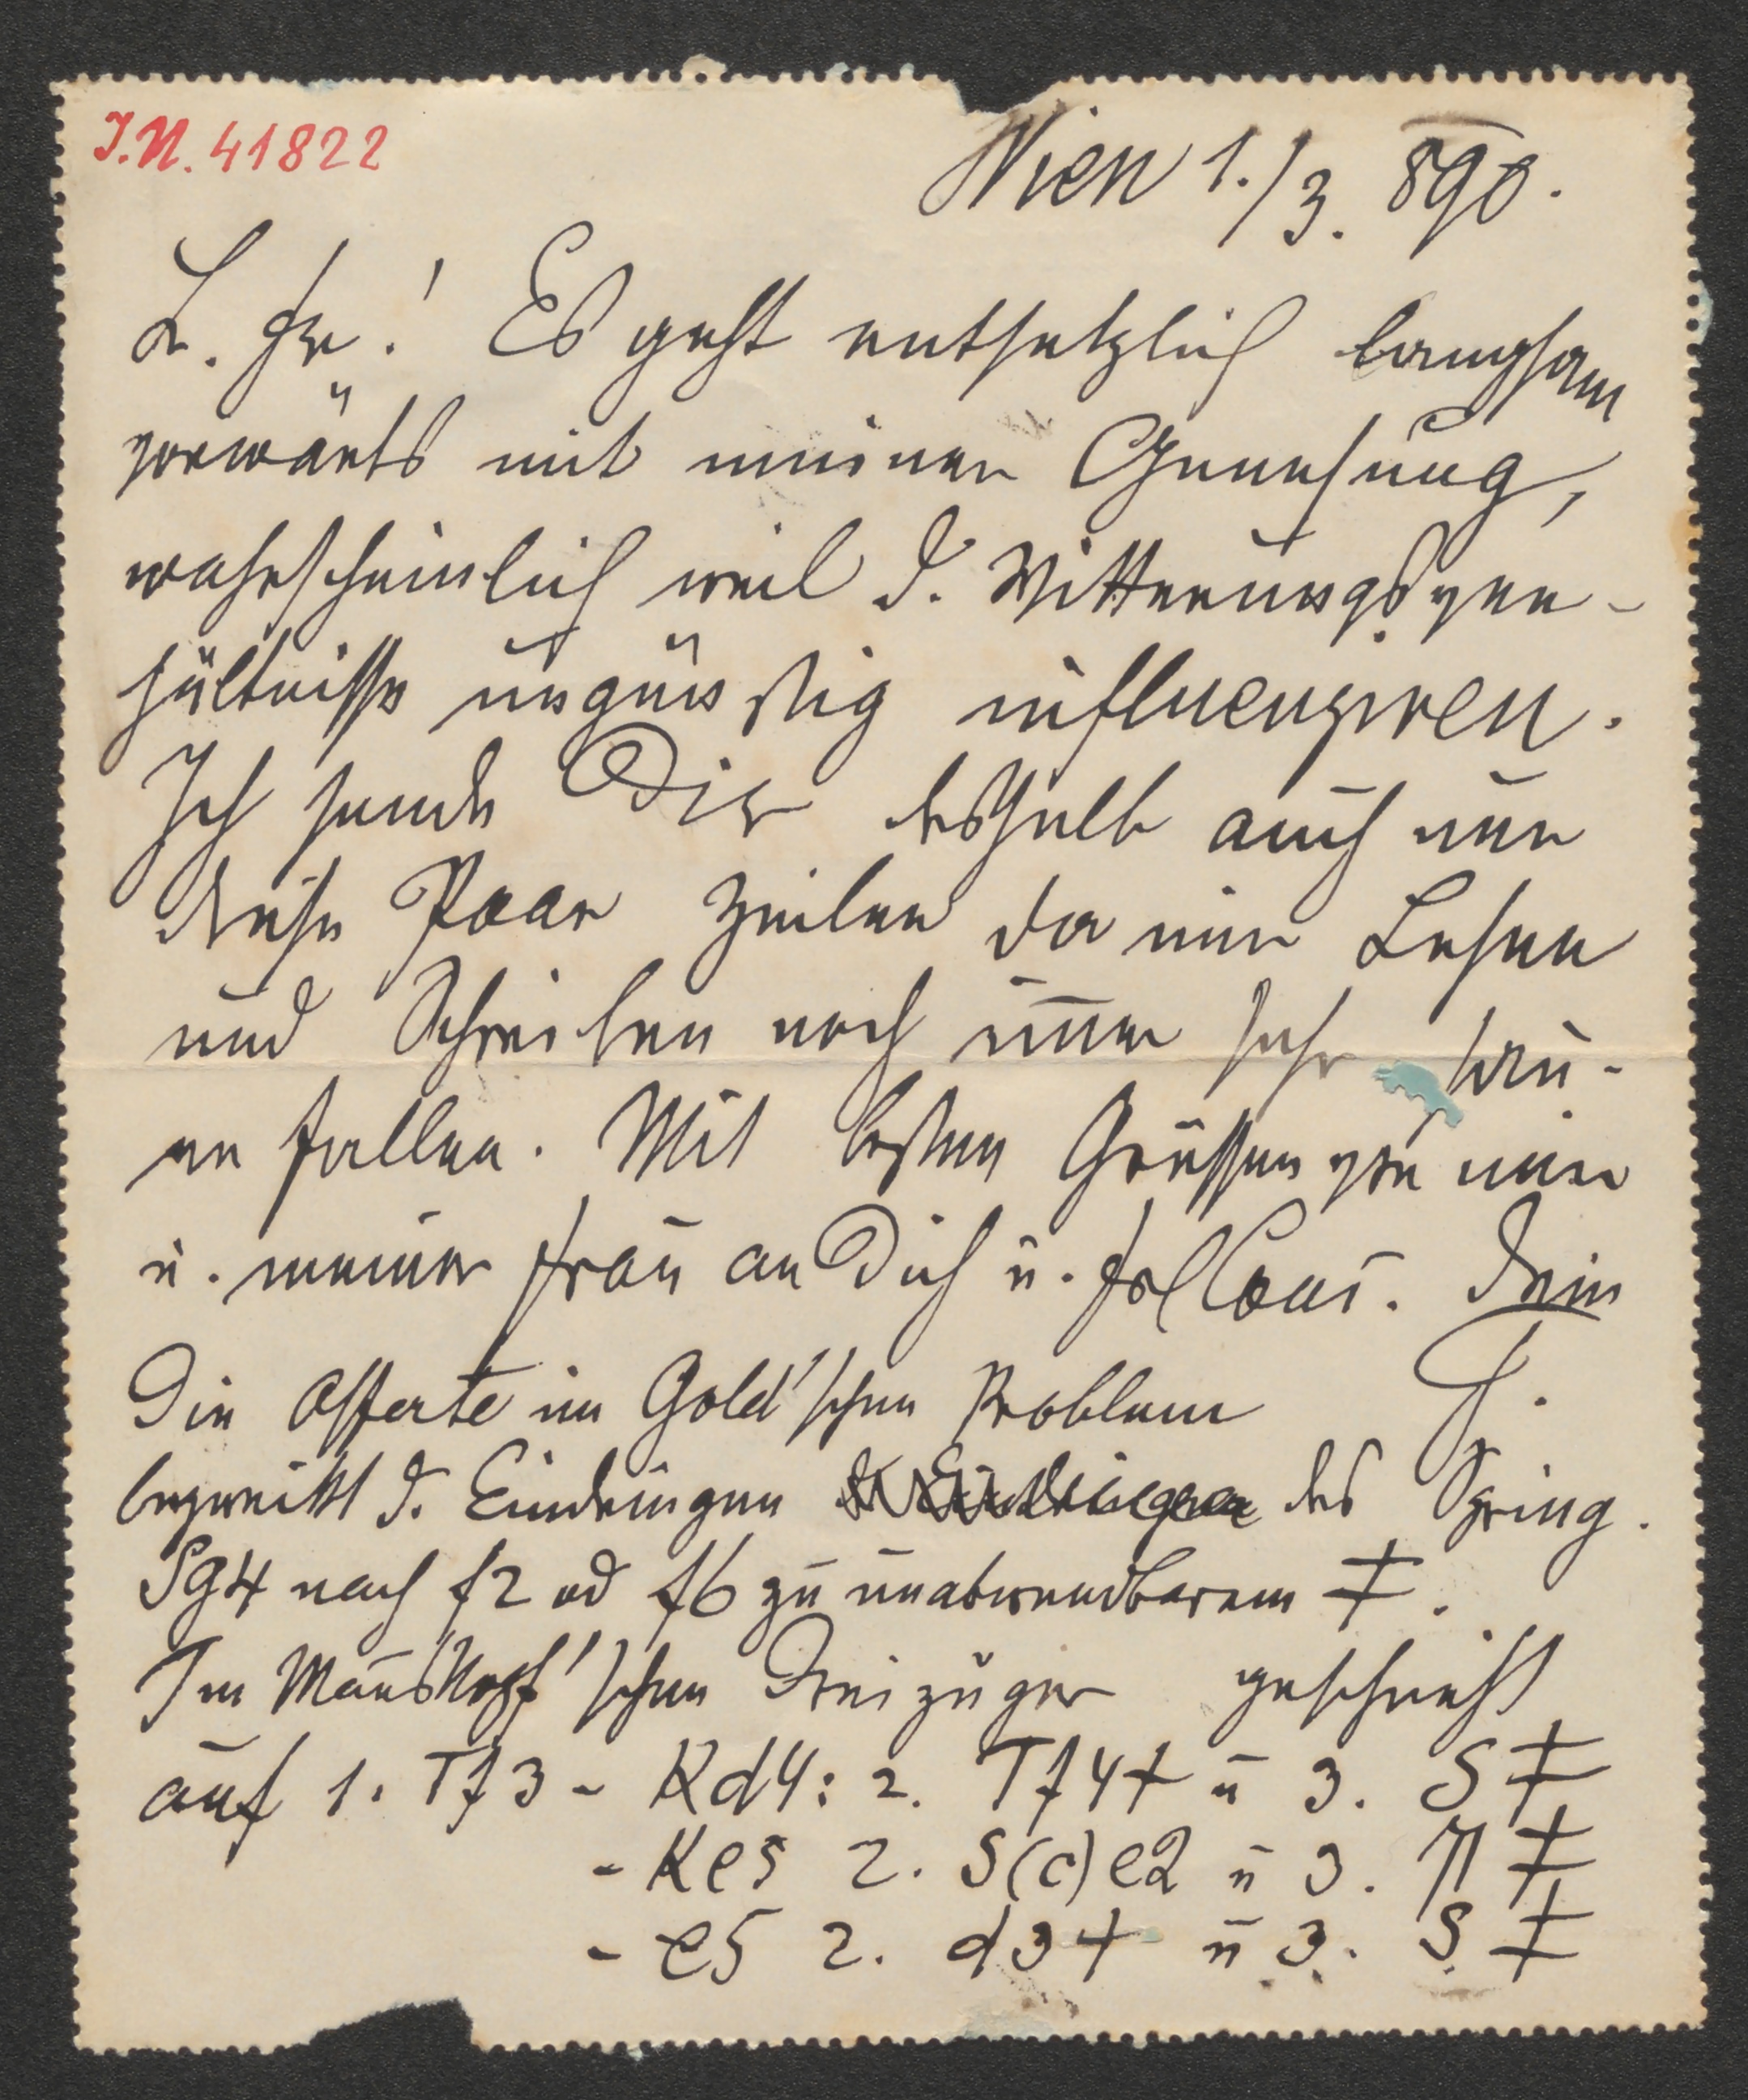 J.N. 41822
Wien 1./3. 890.
L. Fr.! Es geht entsetzlich langsam
vorwärts mit meiner Genesung,
wahrscheinlich weil d. Witterungsver-
hältnisse ungünstig influenziren.
Ich sende Dir deshalb auch nur
diese Paar Zeilen da mir Lesen
und Schreiben noch im̅er sehr
fallen. Mit besten Grüssen von mir
u. meiner Frau an Dich u. Dein
Die Offerte im Gold'schen Problem
bezweckt d. Eindringen des Spring.
Sg4 nach f2 od f6 zu unabwendbarem ‡.
Im Mauskopf'schen Dreizüger geschieht
auf 1. Tf3 - Kd4: 2. Tf4+ u 3. S ‡
- Ke5 2. S(c)e2 u 3. ‡
- e5 2. d3+ u 3. S ‡